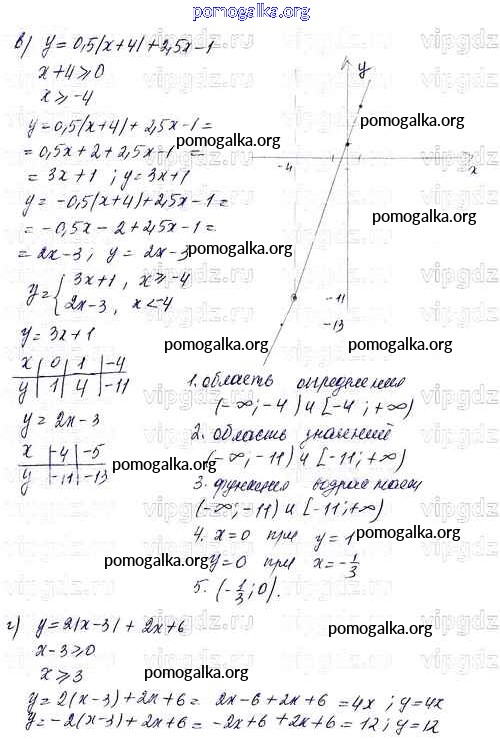 pomogalka.org
в) y = 0,5|x+4| + 2,5x-1
x+4 ⩾ 0
x ⩾ -4
y = 0,5(x+4) + 2,5x-1 =
= 0,5x + 2 + 2,5x - 1 =
= 3x + 1 ; y = 3x+1
y = -0,5(x+4) + 2,5x - 1 =
= -0,5x - 2 + 2,5x - 1 =
= 2x - 3 ; y = 2x - 3
y = { 3x+1 , x ⩾ -4
2x-3 , x < -4
y = 3x+1
x | 0 | 1 | -4
y | 1 | 4 | -11
y = 2x - 3
x | -4 | -5
y | -11 | -13
y
x
-4
1
-11
-13
1. область определения
(-∞; -4) и [-4; +∞)
2. область значений
(-∞; -11) и [-11; +∞)
3. функция возрастает
(-∞; -11) и [-11; +∞)
4. x=0 при y=1
y=0 при x=-1/3
5. (-1/3; 0).
г) y = 2|x-3| + 2x+6
x-3 ⩾ 0
x ⩾ 3
y = 2(x-3) + 2x + 6 = 2x-6 + 2x + 6 = 4x ; y = 4x
y = -2(x-3) + 2x + 6 = -2x+6 + 2x + 6 = 12 ; y = 12
pomogalka.org
pomogalka.org
pomogalka.org
pomogalka.org
pomogalka.org
pomogalka.org
pomogalka.org
pomogalka.org
pomogalka.org
pomogalka.org
pomogalka.org
pomogalka.org
vipgdz.ru